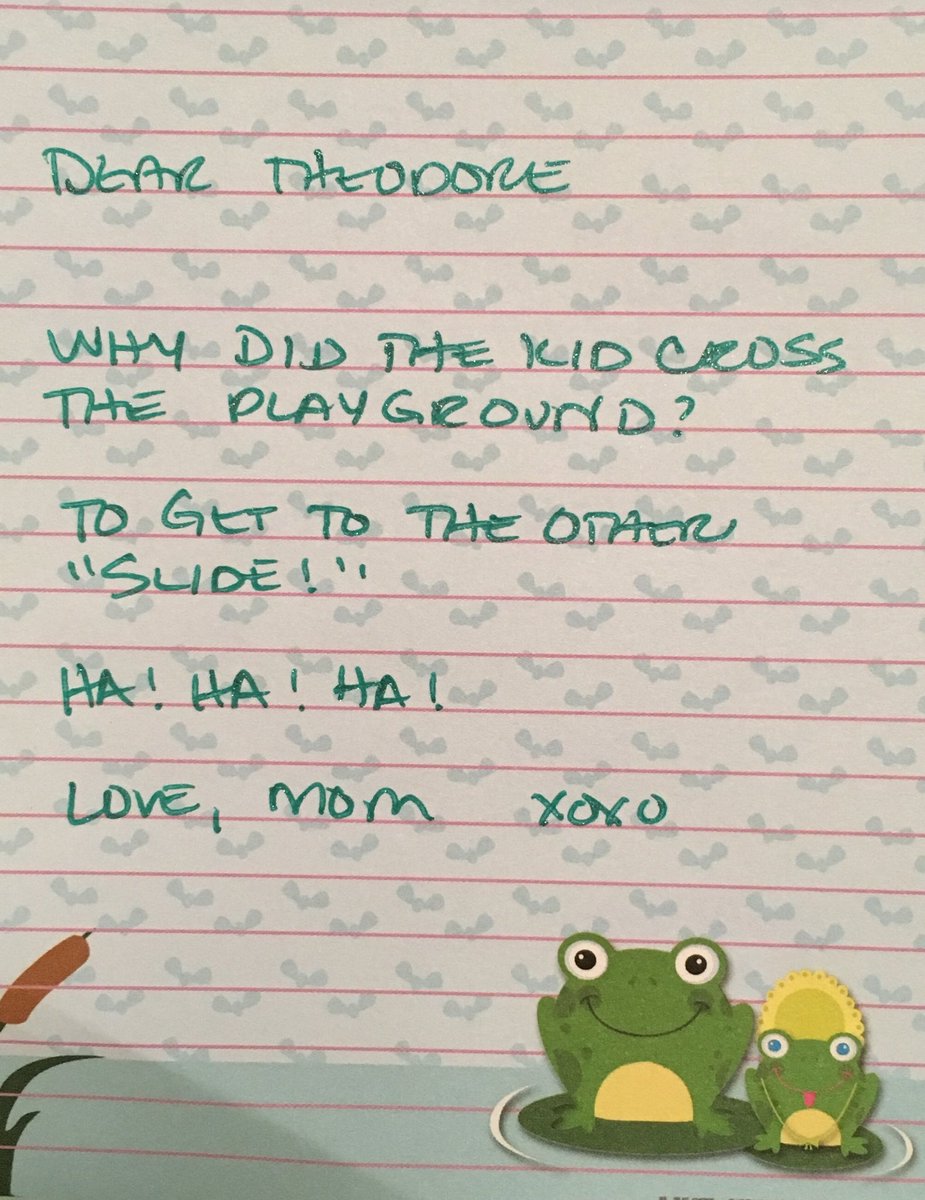 DEAR THEODORE
WHY DID THE KID CROSS
THE PLAYGROUND?
TO GET TO THE OTHER
"SLIDE!"
HA! HA! HA!
LOVE, MOM XOXO